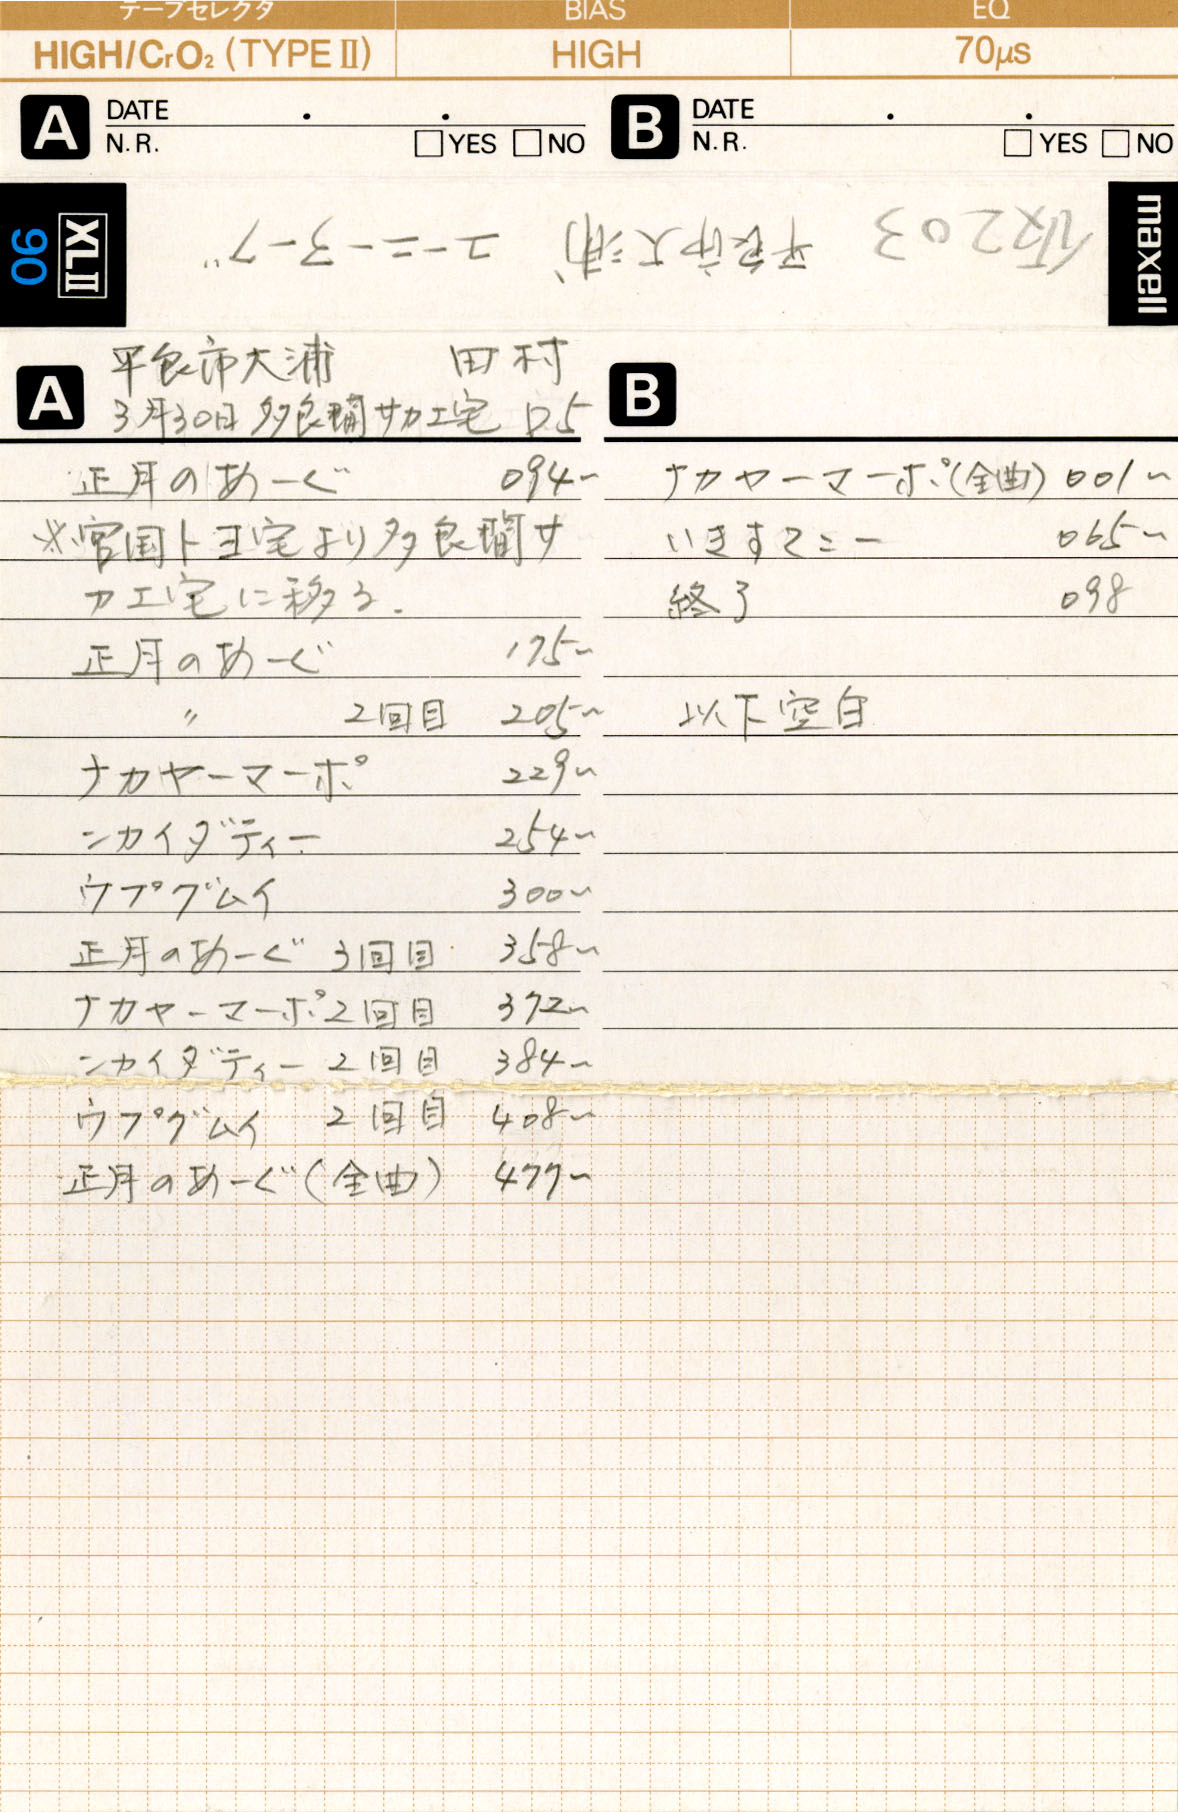 テープセレクタ BIAS EQ
HIGH/CrO₂ (TYPE II) HIGH 70μs
A DATE . . B DATE . .
N.R. □YES □NO N.R. □YES □NO
XLII 90 maxell
仮203 平良市大浦 ユーニーヌーグ
A 平良市大浦 田村
3月30日 多良間サカエ宅 D5
正月のあーぐ 094~
※宮国トヨ宅より多良間サ
カエ宅に移る.
正月のあーぐ 175~
〃 2回目 205~
ナカヤーマーポ 229~
ンカイダティー 254~
ウプグムイ 300~
正月のあーぐ 3回目 358~
ナカヤーマーポ 2回目 372~
ンカイダティー 2回目 384~
ウプグムイ 2回目 408~
正月のあーぐ(全曲) 477~
B
ナカヤーマーポ(全曲) 001~
いきすてぃー 065~
終了 098
以下空白